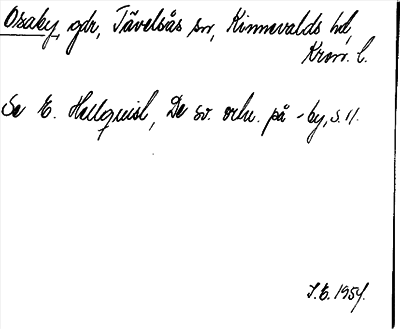 Osaby, gdr, Tävelsås sn, Kinnevalds hd,
Kron. l.
Se E. Hellquist, De sv. ortn. på -by, s. 11.
I.E. 1954.